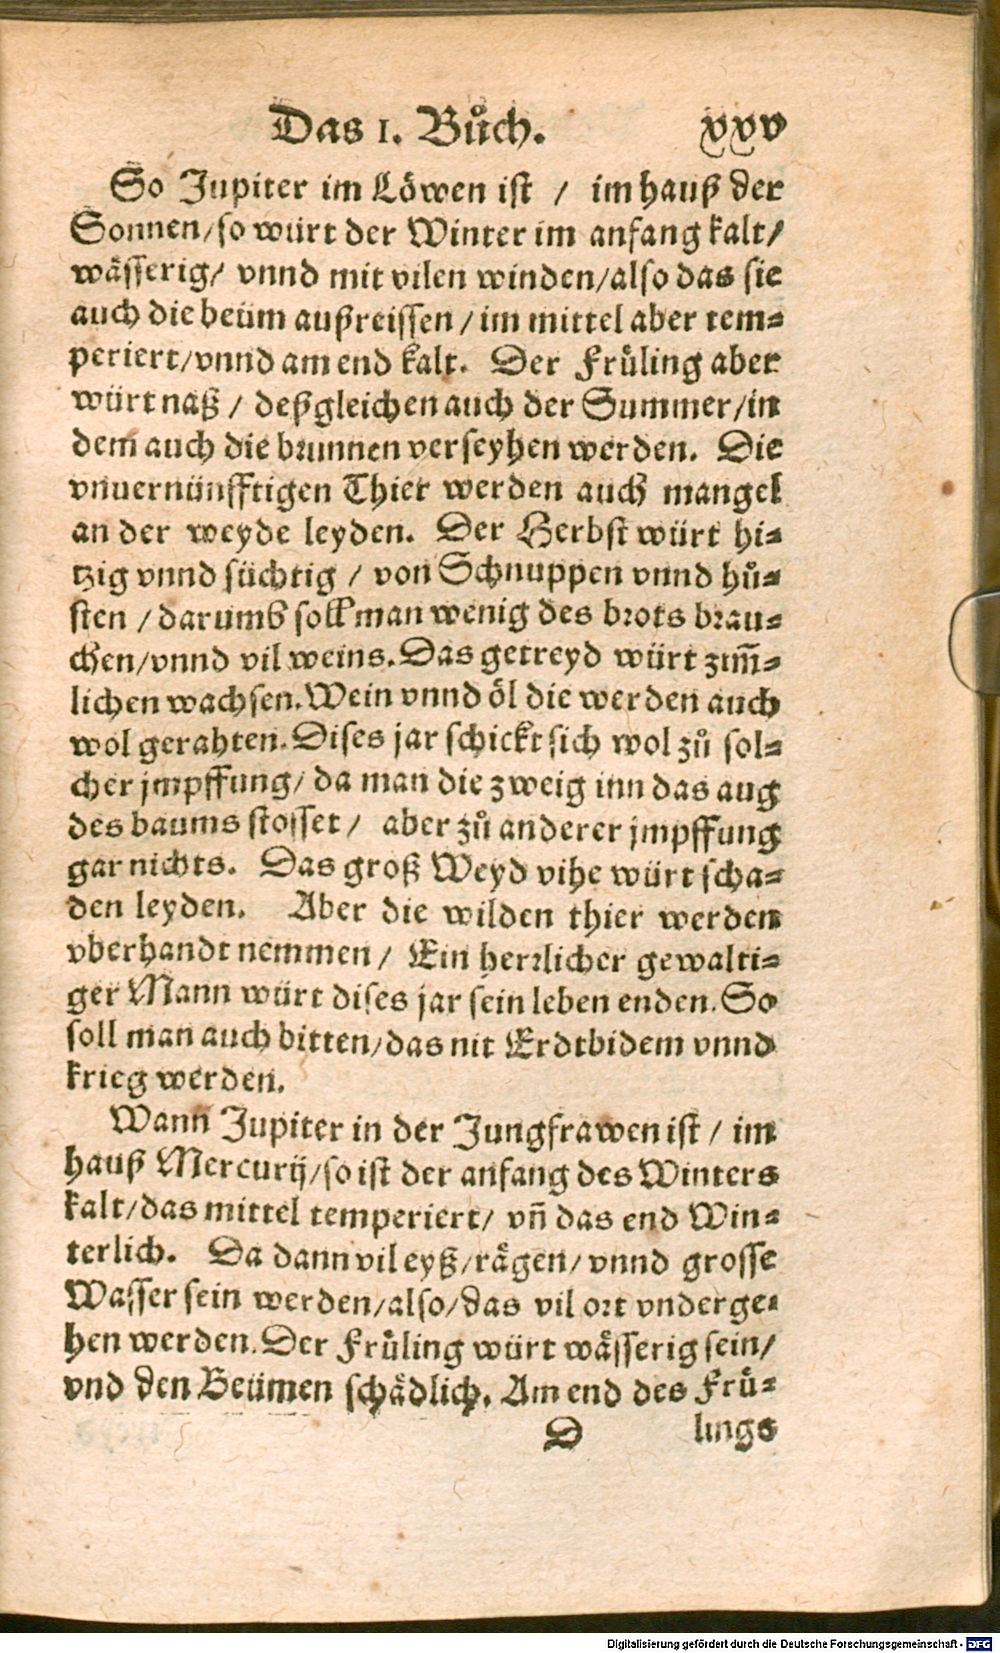 Das I. Bůch. xxv
So Jupiter im Löwen ist / im hauß der
Sonnen/so würt der Winter im anfang kalt/
wässerig/ vnnd mit vilen winden/also das sie
auch die beüm außreissen / im mittel aber tem⸗
periert/vnnd am end kalt. Der Früling aber
würt naß / deßgleichen auch der Summer/in
dem auch die brunnen verseyhen werden. Die
vnuernünfftigen Thier werden auch mangel
an der weyde leyden. Der Herbst würt hi⸗
tzig vnnd süchtig / von Schnuppen vnnd hů⸗
sten / darumb soll man wenig des brots brau⸗
chen/vnnd vil weins. Das getreyd würt zim̃⸗
lichen wachsen. Wein vnnd öl die werden auch
wol gerahten. Dises jar schickt sich wol zů sol⸗
cher jmpffung/ da man die zweig inn das aug
des baums stosset / aber zů anderer jmpffung
gar nichts. Das groß Weyd vihe würt scha⸗
den leyden. Aber die wilden thier werden
vberhandt nemmen / Ein herrlicher gewalti⸗
ger Mann würt dises jar sein leben enden. So
soll man auch bitten/das nit Erdtbidem vnnd
krieg werden.
Wann Jupiter in der Jungfrawen ist / im
hauß Mercurij/so ist der anfang des Winters
kalt/das mittel temperiert/ vñ das end Win⸗
terlich. Da dann vil eyß/rägen/ vnnd grosse
Wasser sein werden/also/das vil ort vnderge⸗
hen werden. Der Früling würt wässerig sein/
vnd den Beümen schädlich. Am end des Frü⸗
D lings
Digitalisierung gefördert durch die Deutsche Forschungsgemeinschaft - DFG